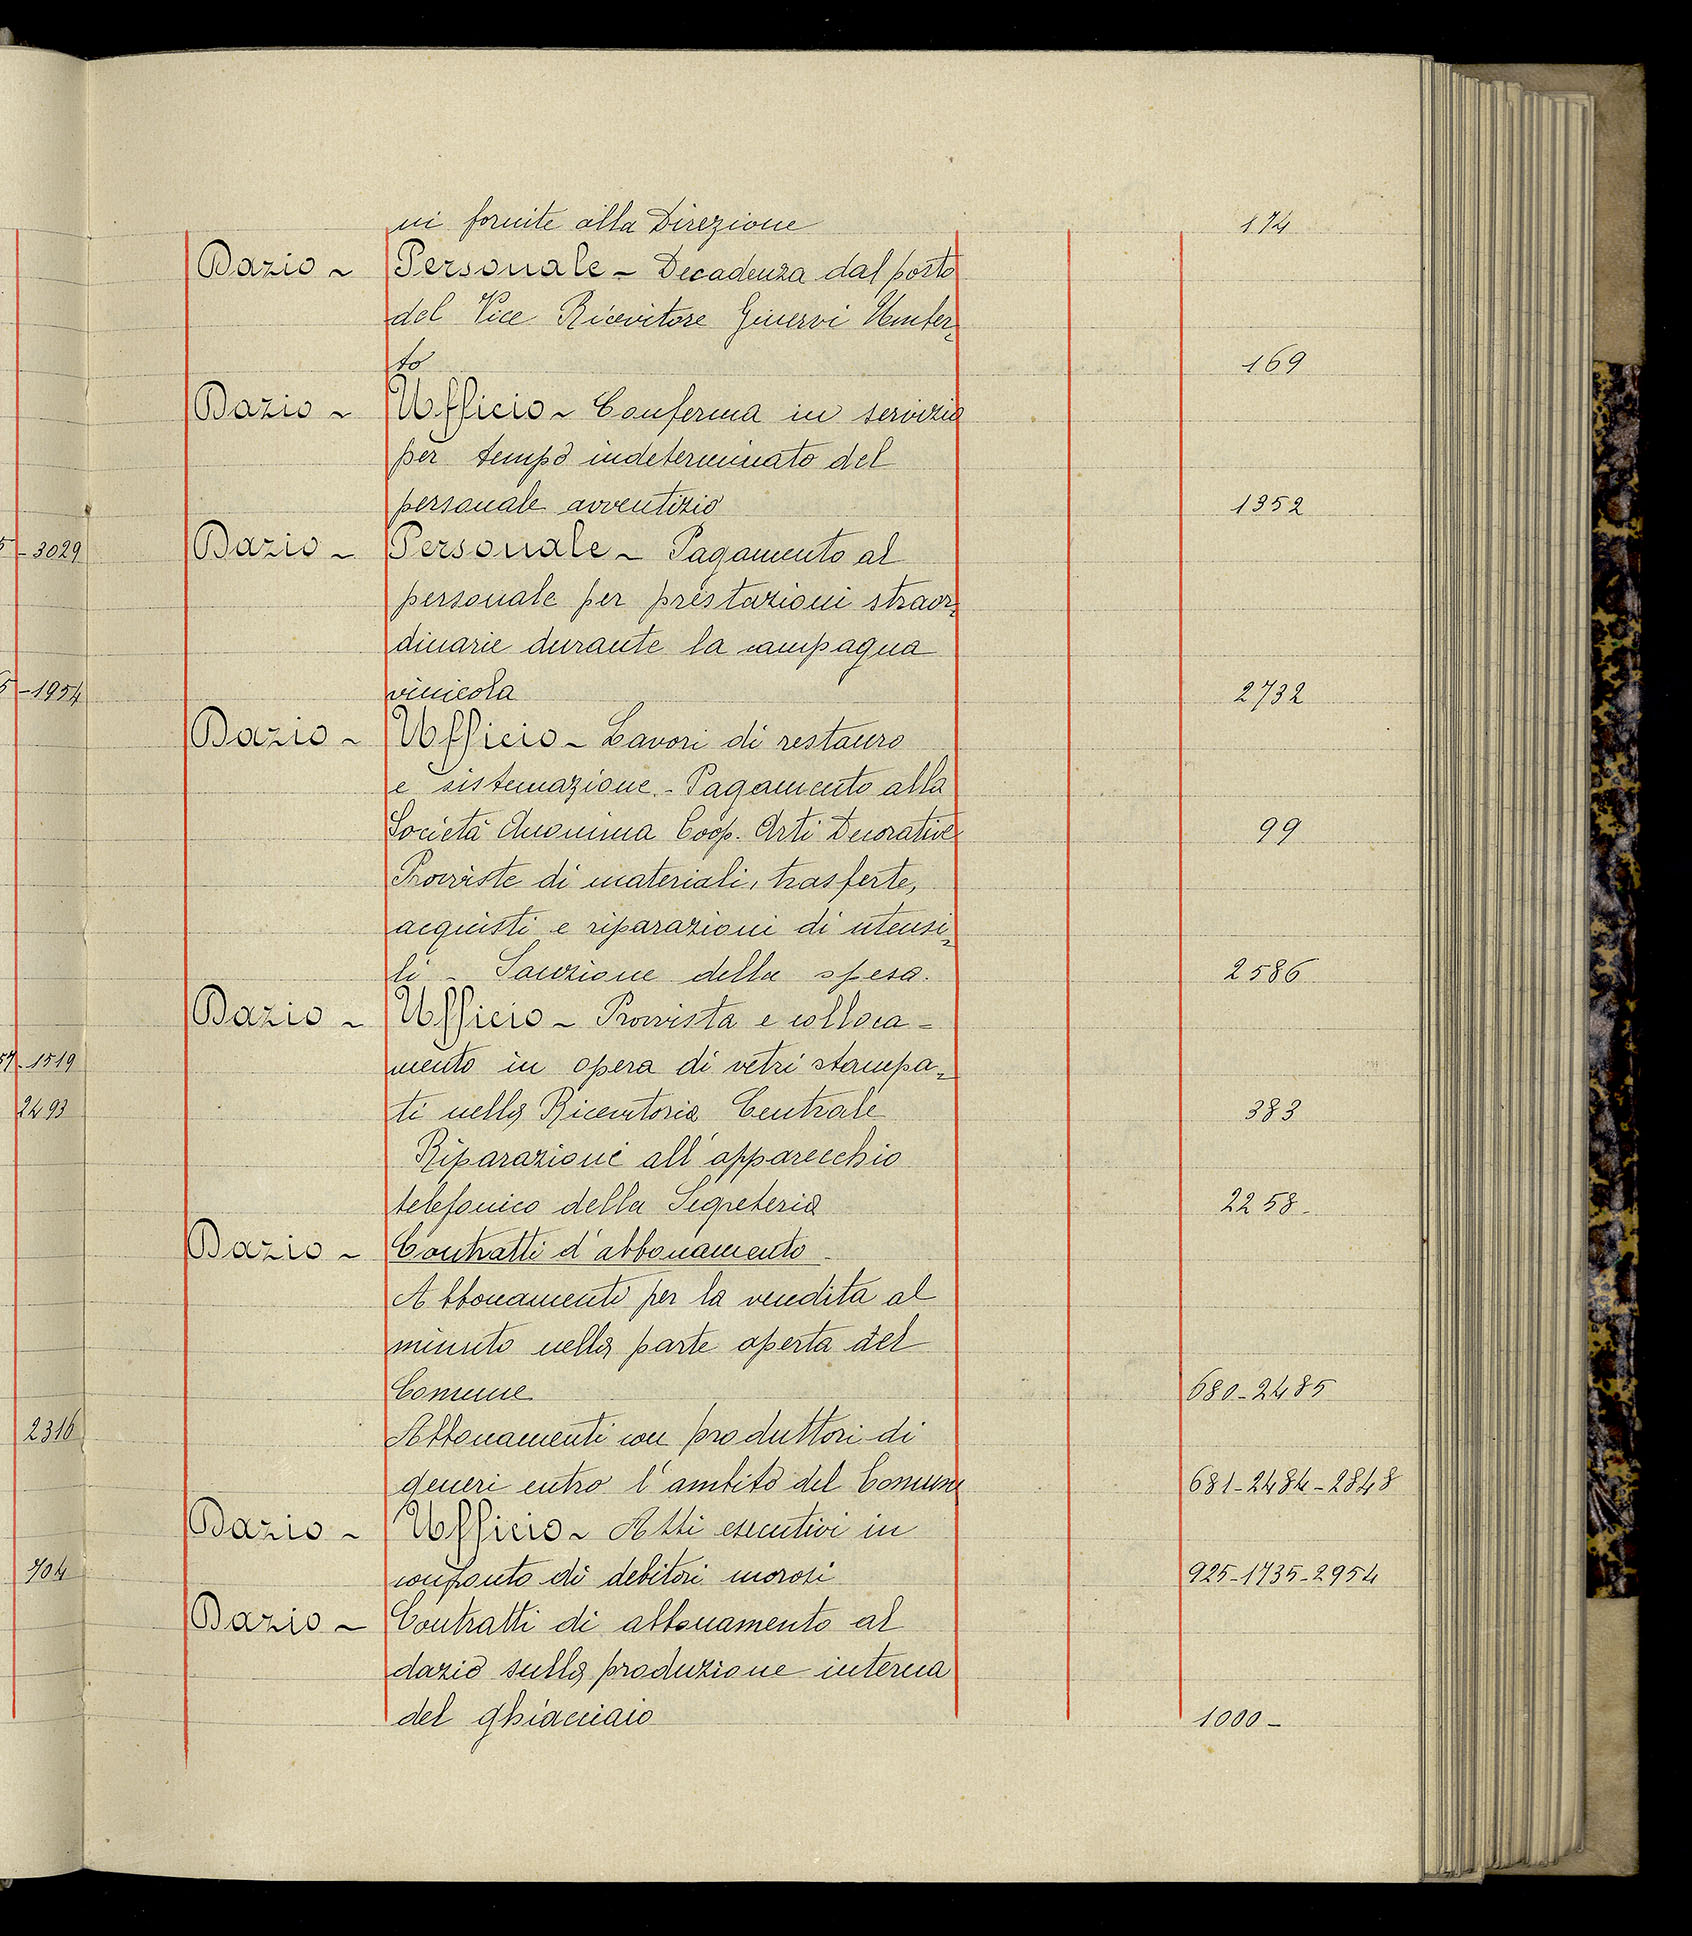 ni fornite alla Direzione 174
Dazio ~ Personale ~ Decadenza dal posto
del Vice Ricevitore Ginervi Umber=
to 169
Dazio ~ Ufficio ~ Conferma in servizio
per tempo indeterminato del
personale avventizio 1352
5 - 3029 Dazio ~ Personale ~ Pagamento al
personale per prestazioni straor=
dinarie durante la campagna
5 - 1954 vinicola 2732
Dazio ~ Ufficio ~ Lavori di restauro
e sistemazione. - Pagamento alla
Società Anonima Coop. Arti Decorative 99
Provviste di materiali, trasferte,
acquisti e riparazioni di utensi=
li - Sanzione della spesa. 2586
Dazio ~ Ufficio ~ Provvista e colloca =
57 - 1519 mento in opera di vetri stampa=
2493 ti nella Ricevitoria Centrale 383
Riparazione all'apparecchio
telefonico della Segreteria 2258 -
Dazio ~ Contratti d'abbonamento -
Abbonamenti per la vendita al
minuto nella parte aperta del
Comune 680 - 2485
2316 Abbonamenti con produttori di
generi entro l'ambito del Comune 681 - 2484 - 2848
Dazio ~ Ufficio ~ Atti esecutivi in
704 confronto di debitori morosi 925 - 1735 - 2954
Dazio ~ Contratti di abbonamento al
dazio sulla produzione interna
del ghiacciaio 1000 -